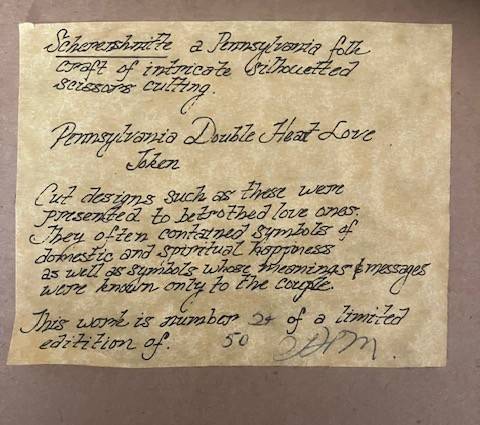 Scherenshnitte a Pennsylvania folk
craft of intricate silhouetted
scissors cutting.
Pennsylvania Double Heat Love
Token
Cut designs such as these were
presented to betrothed love ones.
They often contained symbols of
domestic and spiritual happness
as well as symbols whose meanings & messages
were known only to the couple.
This work is number 24 of a limited
editition of. 50